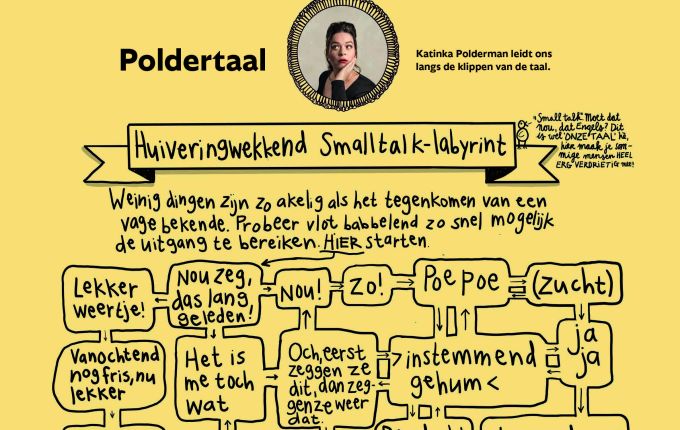 Poldertaal
Katinka Polderman leidt ons
langs de klippen van de taal.
Huiveringwekkend Smalltalk-labyrint
"Small talk" Moet dat
nou, dat Engels? Dit
is wel 'ONZE TAAL' hè,
hier maak je som-
mige mensen HEEL
ERG VERDRIETIG mee!
Weinig dingen zijn zo akelig als het tegenkomen van een
vage bekende. Probeer vlot babbelend zo snel mogelijk
de uitgang te bereiken. HIER starten.
Lekker
weertje!
Nou zeg,
das lang
geleden!
Nou!
Zo!
Poe poe
(zucht)
Vanochtend
nog fris, nu
lekker
Het is
me toch
wat
Och, eerst
zeggen ze
dit, dan zeg-
gen ze weer
dat.
>instemmend
gehum<
ja
ja